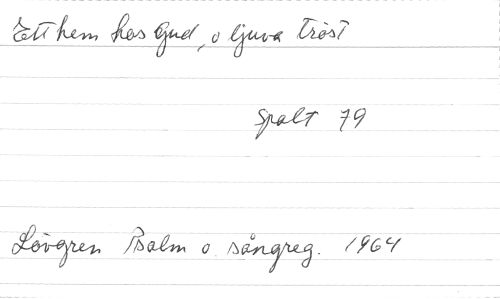 Ett hem hos Gud, o ljuva tröst
Spalt 79
Lövgren Psalm o. sångreg. 1964